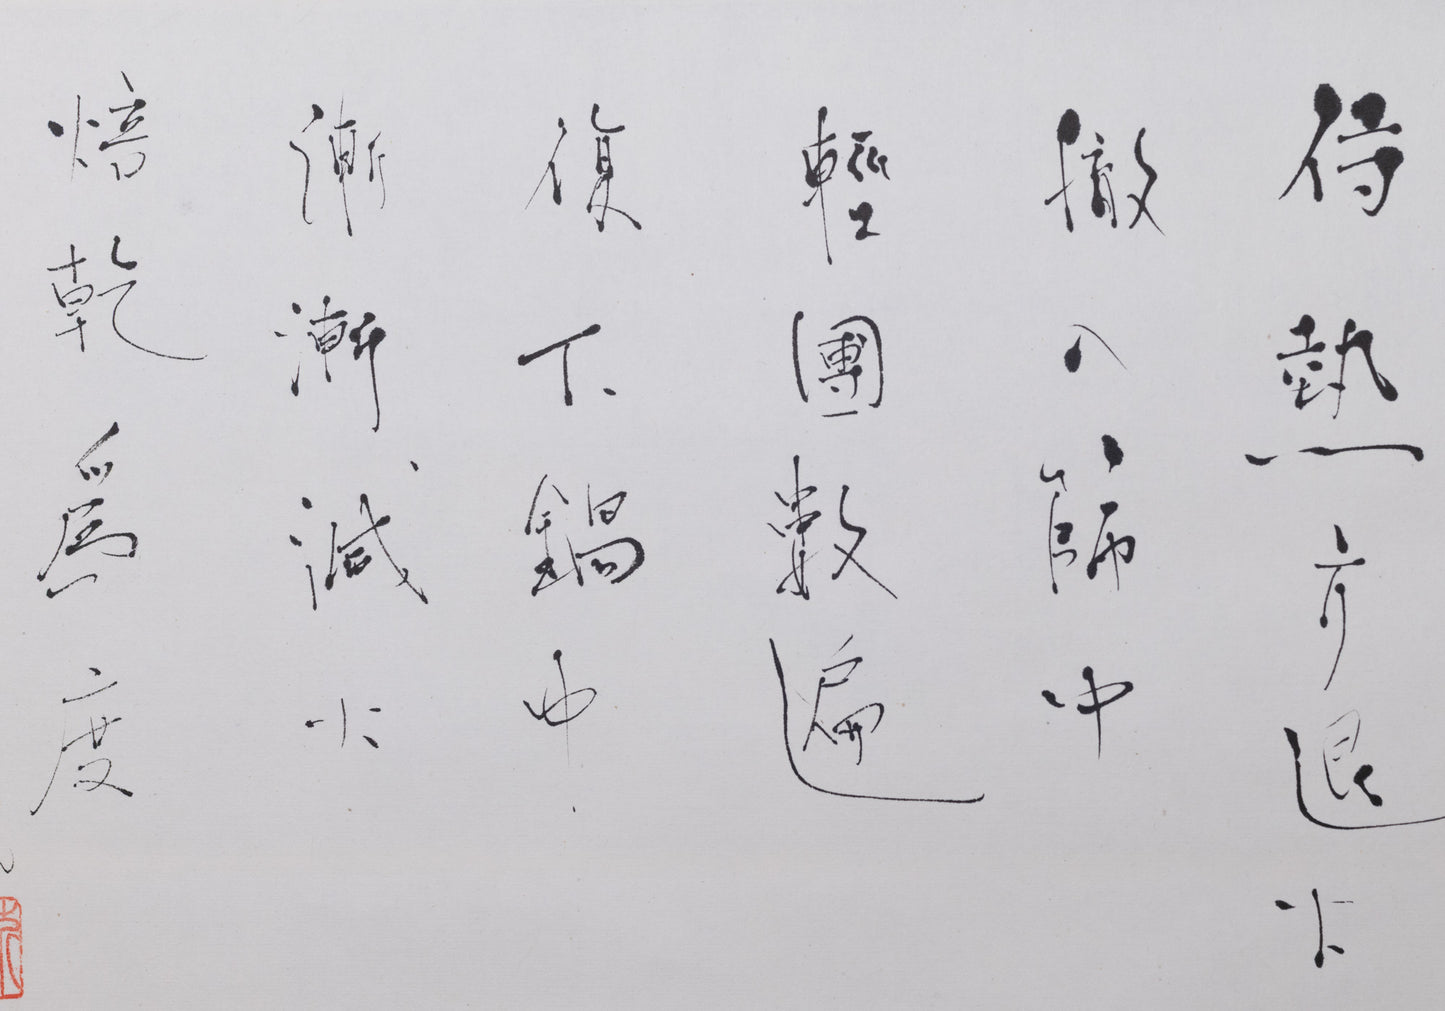 待熟方退火
撤入篩中
輕團數遍
復下鍋中
漸漸減火
焙乾爲度